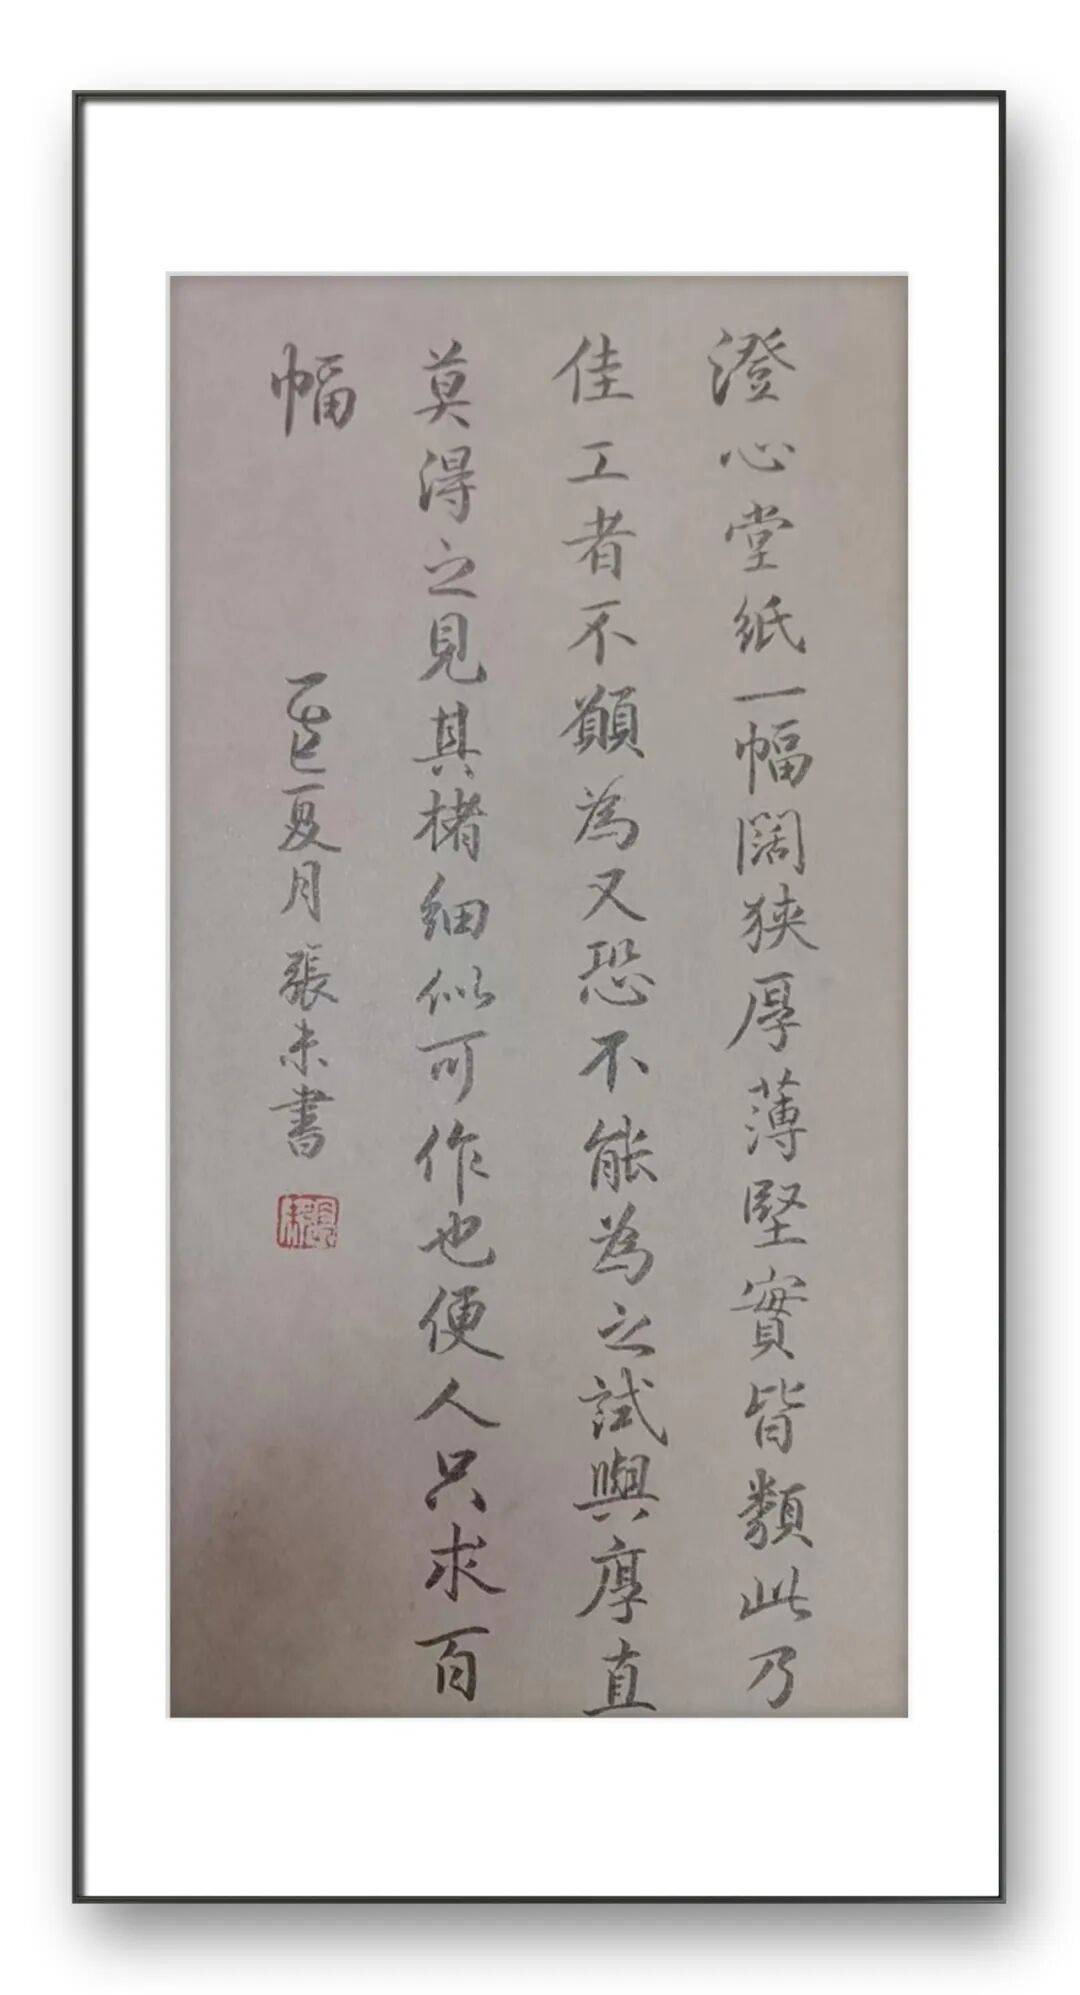 澄心堂紙一幅闊狹厚薄堅實皆類此乃
佳工者不願為又恐不能為之試與厚直
莫得之見其楮細似可作也便人只求百
幅
乙巳夏月張未書